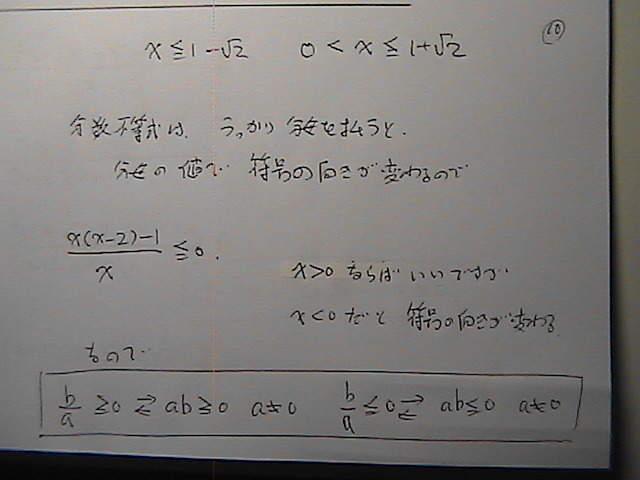 ⑩
x≦1-√2　0<x≦1+√2
分数不等式は、うっかり 分母を払うと、
分母の値で 符号の向きが変わるので
x(x-2)-1/x ≦0.
x>0 ならば いいですが
x<0だと 符号の向きが変わる
なので
b/a ≧0 ⇄ ab≧0 a≠0　b/a ≦0 ⇄ ab≦0 a≠0